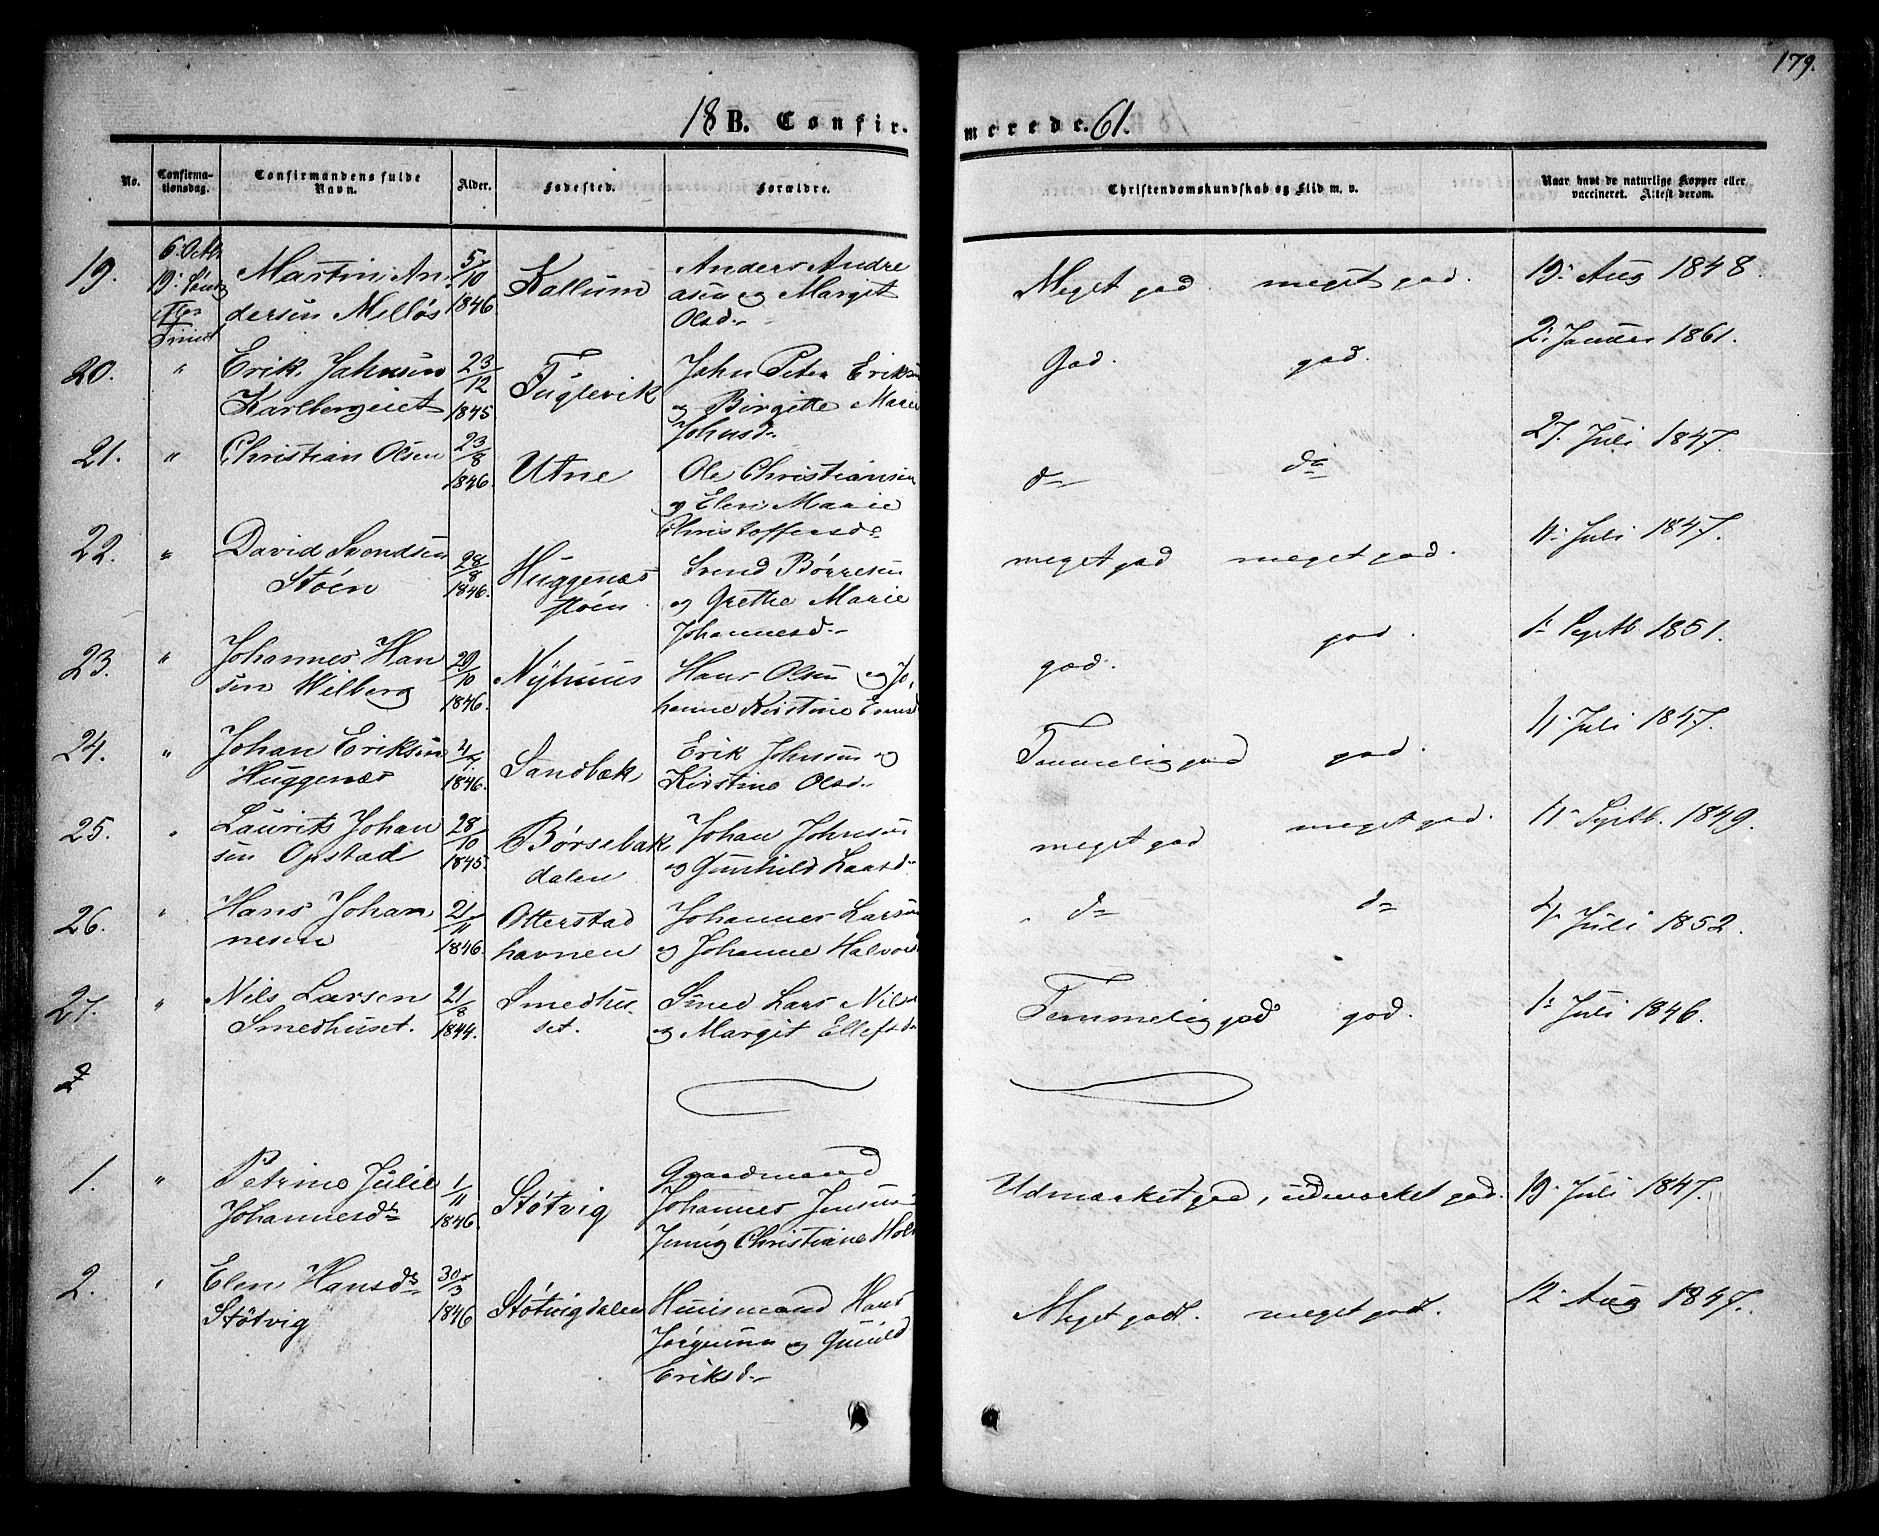 179.
18 B. Confir- merede. 61.
No. Confirma- tionsdag. Confirmandens fulde Navn. Alder. Fødested. Forældre. Christendomskundskab og Flid m. v. Naar havt de naturlige Kopper eller vaccineret. Attest derom.
19. 6. Octb 19. Martin An- 5/10 Kallum Anders Andre Meget god. meget god. 19. Aug 1848.
dersen Melløs 1846 asen og Margit
Olsd.
20. " Erik Johnsen 23/12 Fuglevik John Peter Eriksen God. god. 2. Januar 1861.
Karlbergeiet 1845 og Birgitte Marie
Johnsd
21. " Christian Olsen 23/8 1846. Utne Ole Christiansen do do 27. Juli 1847.
og Elen Marie
Christoffersd
22. " David Svendsen 28/8 Huggenæs Svend Børresen meget god meget god. 11. Juli 1847.
Støen 1846. støen og Grethe Marie
Johannesd
23. " Johannes Han 29/10 Nyhuus Hans Olsen og Jo, god. god. 1. Septb. 1851.
sen Wilberg 1846. hanne Kirstine
24. " Johan Eriksen 4/7 Sandbæk Erik Johnsen og Temmelig god god. 11. Juli 1847.
Huggenæs 1846. Kirstine Olsd
25. " Laurits Johan 28/10 Børsebak Johan Johnsen meget god meget god. 11 Septb. 1849.
sen Opstad 1845 dalen og Gunhild Laarsd
26. " Hans Johan 21/11 Otterstad Johannes Larsen do do 4. Juli 1852.
nesen 1846. havnen og Johanne Halvors
27. " Nils Larsen 21/8 Smedhu- Smed Lars Nils Temmelig god god. 1. Juli 1846.
Smedhuset. 1844. set. og Margit Ellefsd
1. " Petrine Julie 1/11 Støtvig Gaardmand Udmærket god, udmærket god. 19. Juli 1847.
Johannesd 1846. Johannes Jensen
Christiane Hol
2. " Elen Hansd 30/3 Støtvigdalen Huusmand Hans Meget godt. meget godt. 12. Aug 1847.
Støtvig 1846 Jørgensen og Gunild
Eriksd